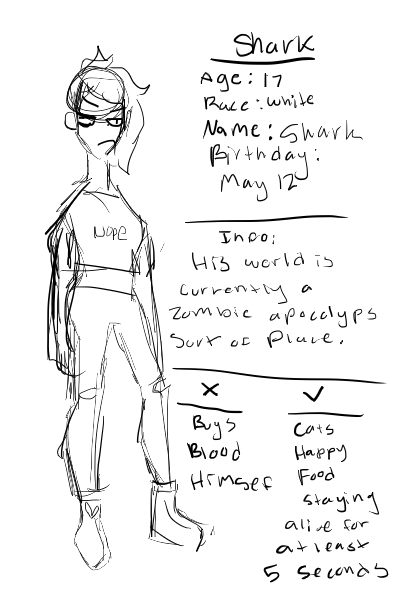 Shark
Age: 17
Race: white
Name: Shark
Birthday:
May 12
NOPE
Info:
His world is
currently a
zombie apocalyps
Sort of place.
X ✓
Bugs
Blood
Himself
Cats
Happy
Food
staying
alive for
at least
5 seconds